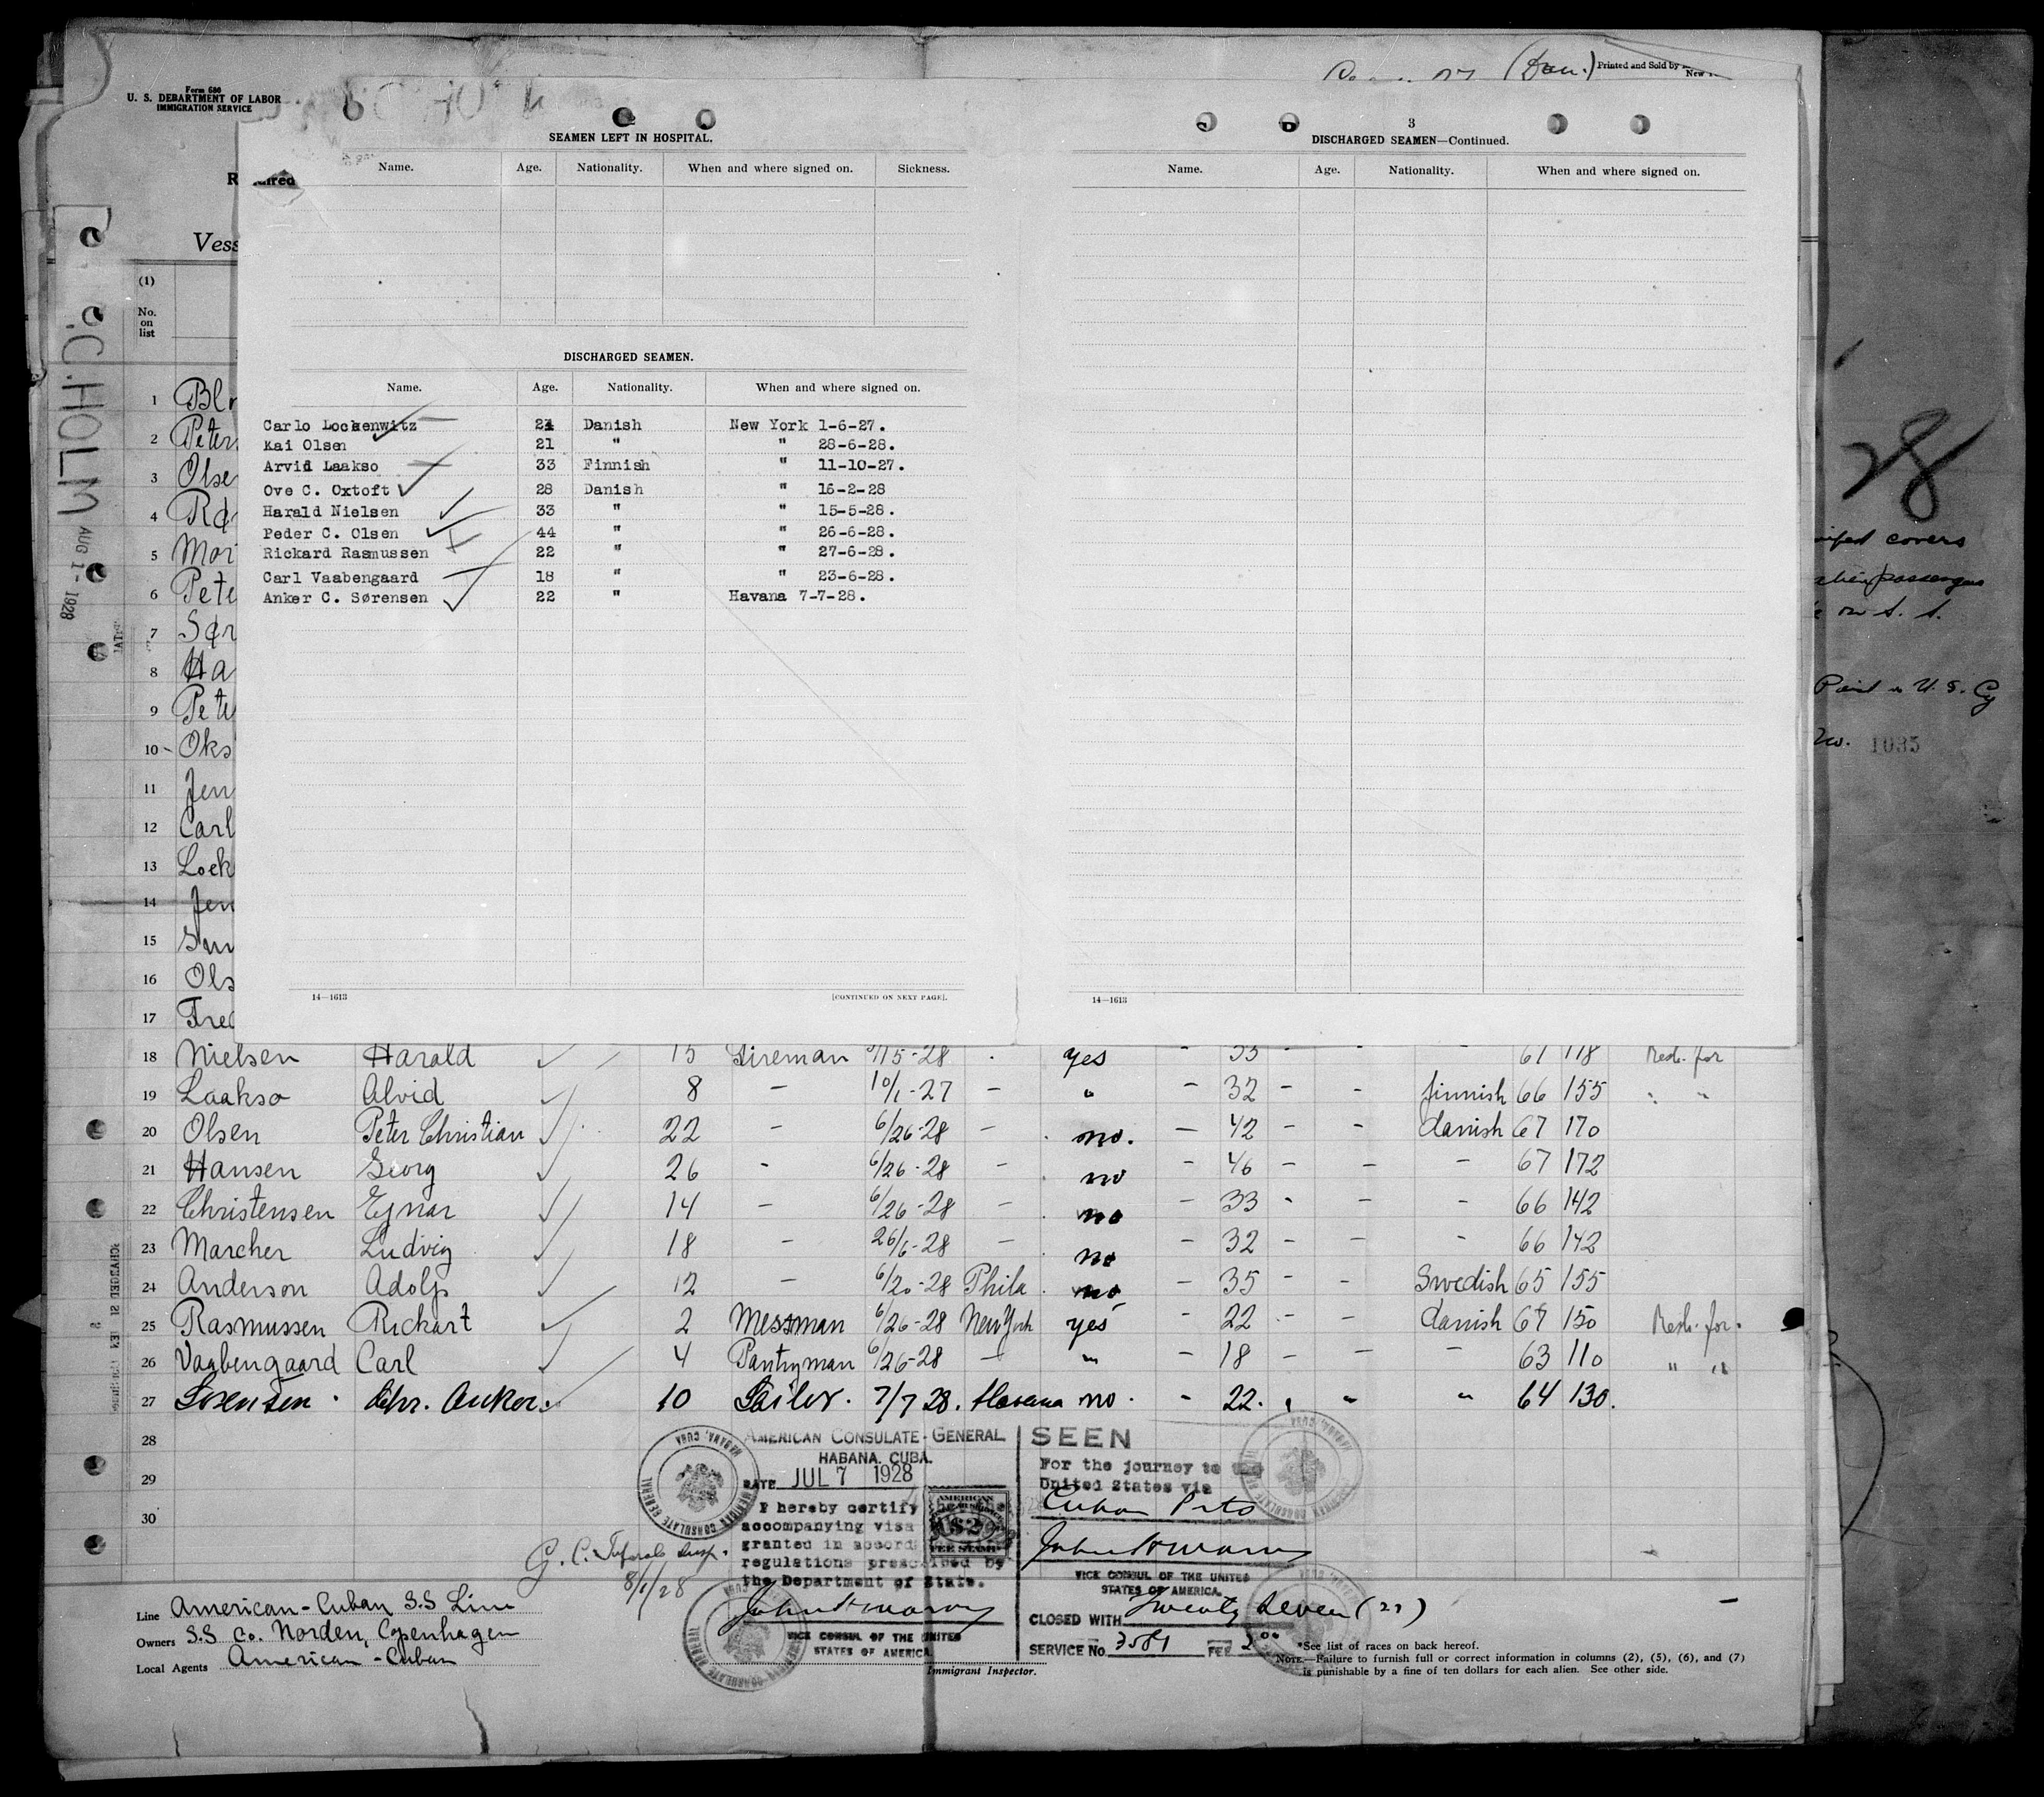 (Dan.)
Printed and Sold by
New
Form 680
U. S. DEPARTMENT OF LABOR
IMMIGRATION SERVICE
Vess
(1)
No.
on
list
P.C. HOLM AUG 1- 1928
SEAMEN LEFT IN HOSPITAL.
Name. Age. Nationality. When and where signed on. Sickness.
DISCHARGED SEAMEN.
Name. Age. Nationality. When and where signed on.
Carlo Lockenwitz 24 Danish New York 1-6-27.
Kai Olsen 21 " " 28-6-28.
Arvid Laakso 33 Finnish " 11-10-27.
Ove C. Oxtoft 28 Danish " 16-2-28
Harald Nielsen 33 " " 15-5-28.
Peder C. Olsen 44 " " 26-6-28.
Rickard Rasmussen 22 " " 27-6-28.
Carl Vaabengaard 18 " " 23-6-28.
Anker C. Sørensen 22 " Havana 7-7-28.
14—1613 [CONTINUED ON NEXT PAGE].
3
DISCHARGED SEAMEN—Continued.
Name. Age. Nationality. When and where signed on.
14—1613
1 Blo
2 Peters
3 Olse
4 Rø
5 Mor
6 Pete
7 Sør
8 Ha
9 Pete
10 Oks
11 Jen
12 Carl
13 Lock
14 Jen
15
16 Ols
17 Fred
18 Nielsen Harald 15 Fireman 5/15-28 yes - 33 - - - 67 178 Resh. for
19 Laakso Alvid 8 - 10/1-27 - " - 32 - - finnish 66 155 " "
20 Olsen Peter Christian 22 - 6/26-28 - no. - 42 - - danish 67 170
21 Hansen Georg 26 - 6/26-28 - no - 46 - - - 67 172
22 Christensen Ejnar 14 - 6/26-28 - no - 33 - - - 66 142
23 Marcher Ludvig 18 - 26/6-28 - no - 32 - - - 66 142
24 Anderson Adolf 12 - 6/20-28 Phila. no - 35 - - Swedish 65 155
25 Rasmussen Rickart 2 Messman 6/26-28 New York yes - 22 - - danish 67 150 Resh. for.
26 Vaabengaard Carl 4 Pantryman 6/26-28 - " - 18 - - - 63 110 " "
27 Sorensen Chr. Anker. 10 Sailor. 7/7 28. Havana no. - 22. " " " 64 130.
28
29
30
AMERICAN CONSULATE-GENERAL
HABANA, CUBA.
DATE JUL 7 1928
I hereby certify that the
accompanying visa
granted in accord
regulations prescribed by
the Department of State.
VICE CONSUL OF THE UNITED
STATES OF AMERICA.
AMERICAN
$2
FEE STAMP
SEEN
For the journey to the
United States via
Cuban Prts
VICE CONSUL OF THE UNITED
STATES OF AMERICA.
CLOSED WITH Twenty Seven (27)
SERVICE No. 3581 FEE 2.00
8/1/28
Line American-Cuban S.S Line
Owners S.S Co. Norden, Copenhagen
Local Agents American-Cuban
Immigrant Inspector.
*See list of races on back hereof.
NOTE.—Failure to furnish full or correct information in columns (2), (5), (6), and (7)
is punishable by a fine of ten dollars for each alien. See other side.
28
covers
passengers
on S. S.
U. S. Cy
No. 1035